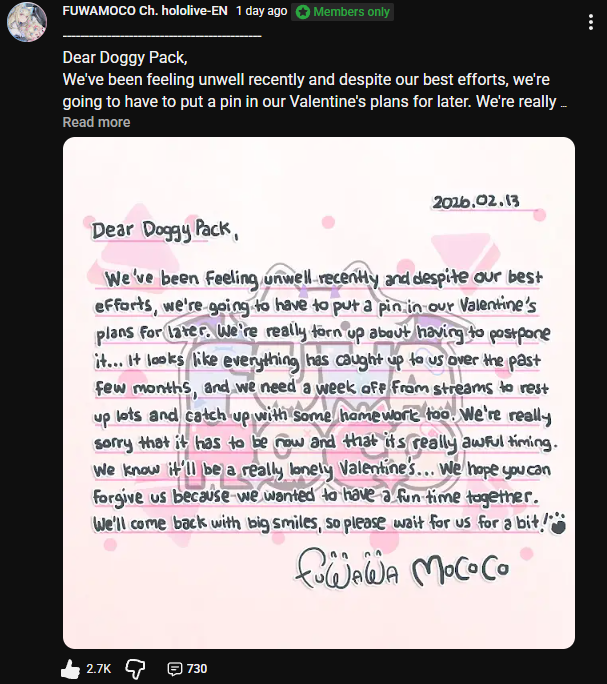 FUWAMOCO Ch. hololive-EN 1 day ago Members only
________________________________________
Dear Doggy Pack,
We've been feeling unwell recently and despite our best efforts, we're
going to have to put a pin in our Valentine's plans for later. We're really ...
Read more
2026.02.13
Dear Doggy Pack,
We've been feeling unwell recently and despite our best
efforts, we're going to have to put a pin in our Valentine's
plans for later. We're really torn up about having to postpone
it... It looks like everything has caught up to us over the past
few months, and we need a week off from streams to rest
up lots and catch up with some homework too. We're really
sorry that it has to be now and that its really awful timing.
We know it'll be a really lonely Valentine's... We hope you can
forgive us because we wanted to have a fun time together.
We'll come back with big smiles, so please wait for us for a bit!
FUWAWA MOCOCO
2.7K 730